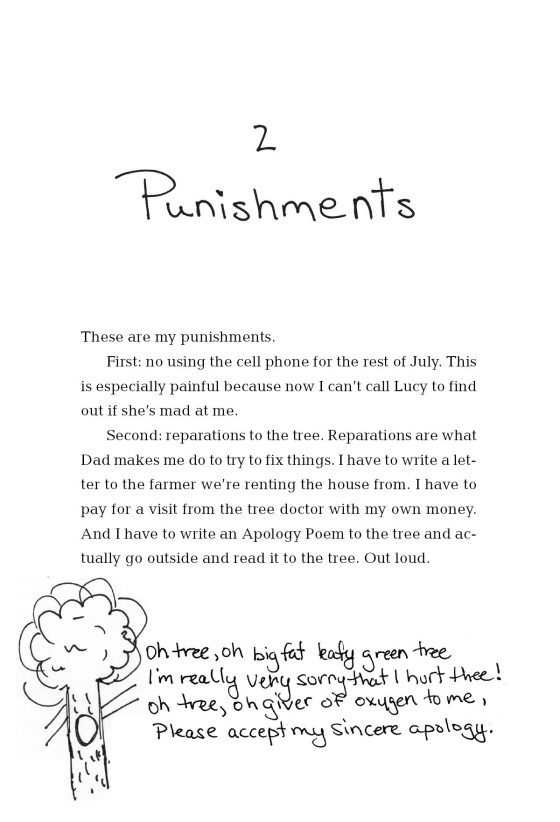 2
Punishments
These are my punishments.
First: no using the cell phone for the rest of July. This
is especially painful because now I can't call Lucy to find
out if she's mad at me.
Second: reparations to the tree. Reparations are what
Dad makes me do to try to fix things. I have to write a let-
ter to the farmer we're renting the house from. I have to
pay for a visit from the tree doctor with my own money.
And I have to write an Apology Poem to the tree and ac-
tually go outside and read it to the tree. Out loud.
Oh tree, oh big fat leafy green tree
I'm really very sorry that I hurt thee!
oh tree, oh giver of oxygen to me,
Please accept my sincere apology.